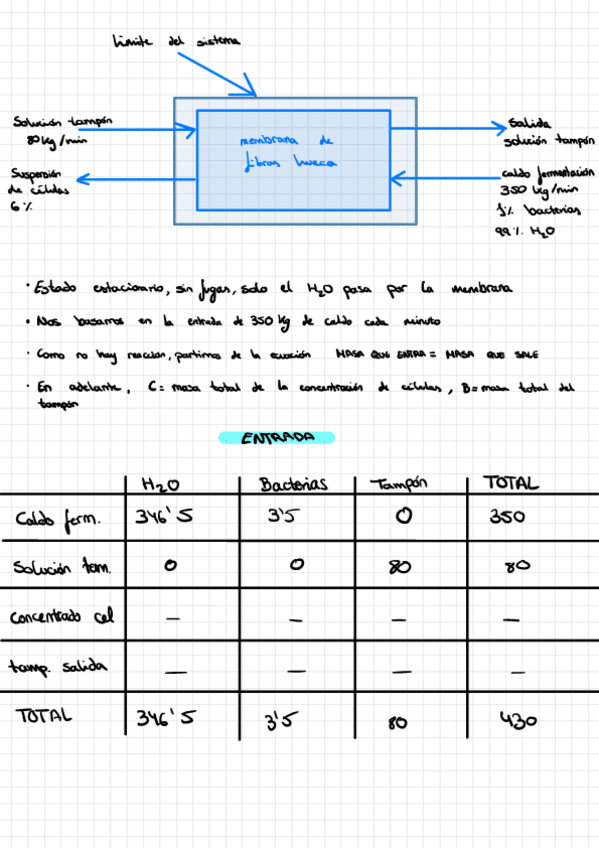 Límite del sistema
Solución tampón
80 kg/min
Suspensión
de células
6 %
membrana de
fibras hueca
Salida
solución tampón
caldo fermentación
350 kg/min
1% bacterias
99% H2O
· Estado estacionario, sin fugas, solo el H2O pasa por la membrana
· Nos basamos en la entrada de 350 Kg de caldo cada minuto
· Como no hay reacción, partimos de la ecuación MASA QUE ENTRA = MASA QUE SALE
· En adelante, C = masa total de la concentración de células, B = masa total del
tampón
ENTRADA
H2O Bacterias Tampón TOTAL
Caldo ferm. 346'5 3'5 0 350
Solución tam. 0 0 80 80
Concentrado cel — — — —
tamp. salida — — — —
TOTAL 346'5 3'5 80 430